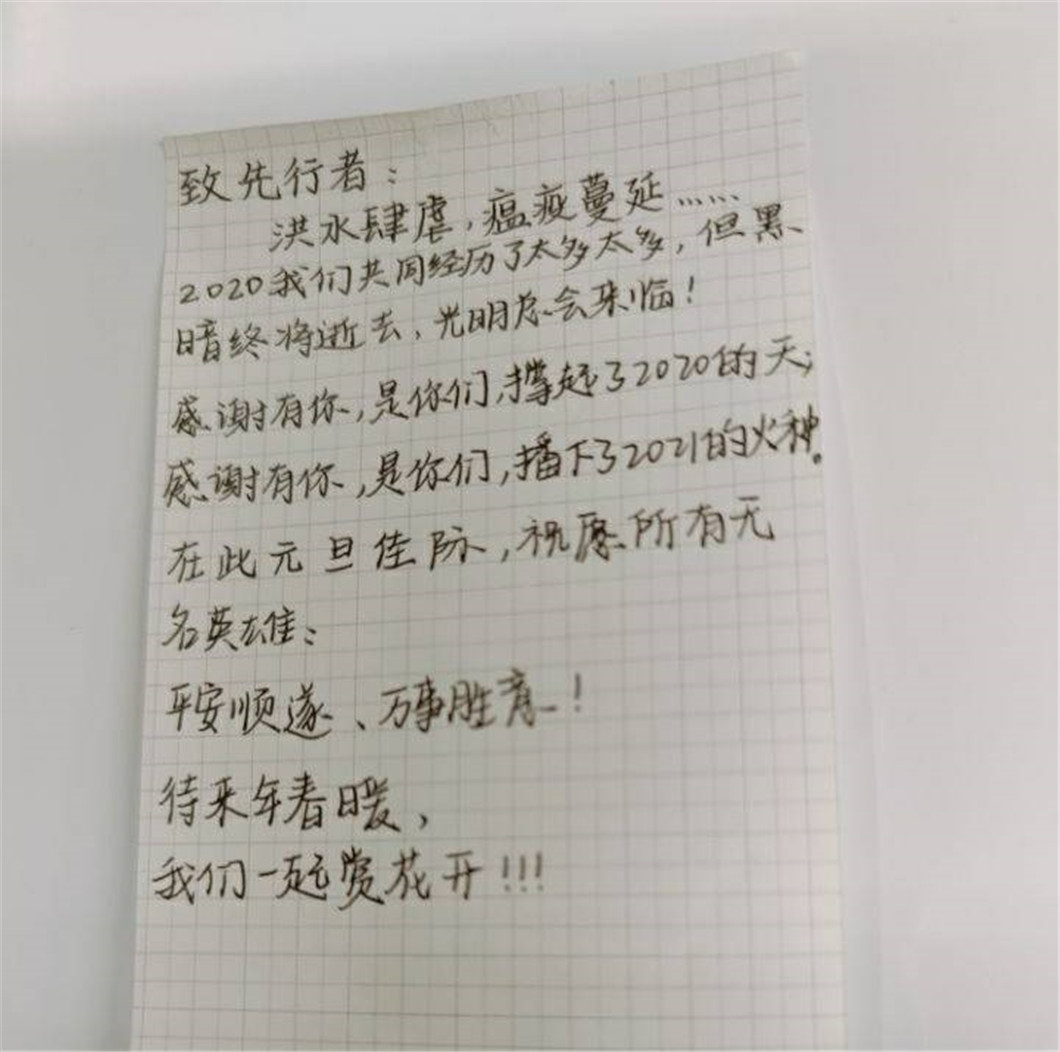 致先行者：
洪水肆虐，瘟疫蔓延……
2020我们共同经历了太多太多，但黑
暗终将逝去，光明总会来临！
感谢有你，是你们，撑起了2020的天；
感谢有你，是你们，播下了2021的火种。
在此元旦佳际，祝愿所有无
名英雄：
平安顺遂、万事胜意！
待来年春暖，
我们一起赏花开！！！